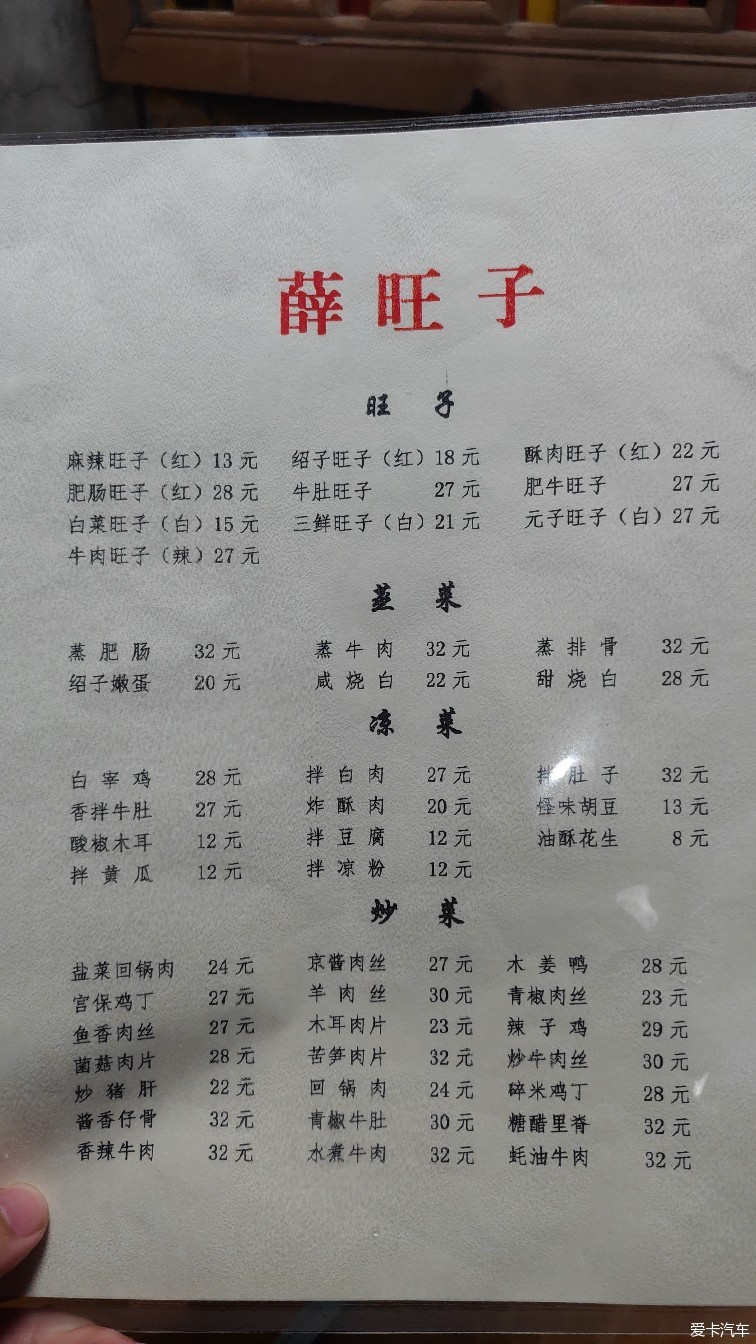 薛旺子
旺 子
麻辣旺子（红）13元 绍子旺子（红）18元 酥肉旺子（红）22元
肥肠旺子（红）28元 牛肚旺子 27元 肥牛旺子 27元
白菜旺子（白）15元 三鲜旺子（白）21元 元子旺子（白）27元
牛肉旺子（辣）27元
蒸 菜
蒸肥肠 32元 蒸牛肉 32元 蒸排骨 32元
绍子嫩蛋 20元 咸烧白 22元 甜烧白 28元
凉 菜
白宰鸡 28元 拌白肉 27元 拌肚子 32元
香拌牛肚 27元 炸酥肉 20元 怪味胡豆 13元
酸椒木耳 12元 拌豆腐 12元 油酥花生 8元
拌黄瓜 12元 拌凉粉 12元
炒 菜
盐菜回锅肉 24元 京酱肉丝 27元 木姜鸭 28元
宫保鸡丁 27元 羊肉丝 30元 青椒肉丝 23元
鱼香肉丝 27元 木耳肉片 23元 辣子鸡 29元
菌菇肉片 28元 苦笋肉片 32元 炒牛肉丝 30元
炒猪肝 22元 回锅肉 24元 碎米鸡丁 28元
酱香仔骨 32元 青椒牛肚 30元 糖醋里脊 32元
香辣牛肉 32元 水煮牛肉 32元 蚝油牛肉 32元
爱卡汽车